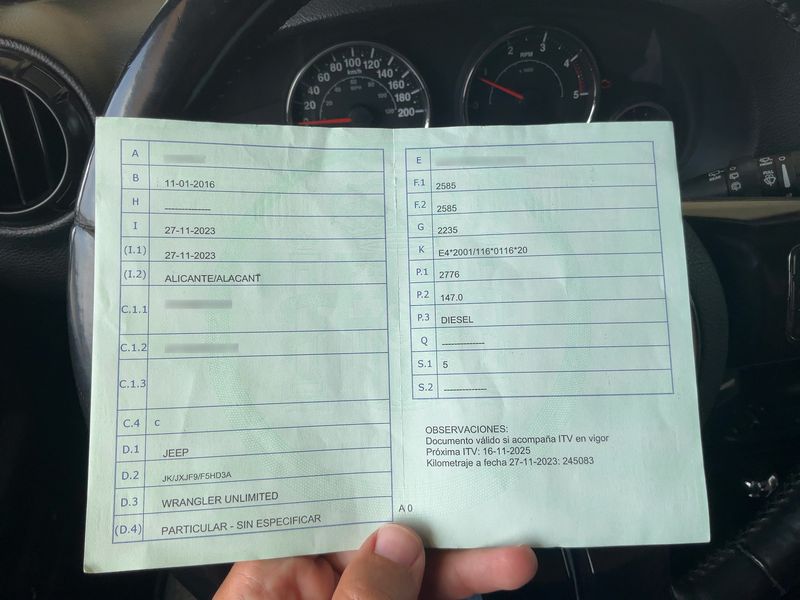 20 40 60 80 100 120 140 160 180 200
km/h
MPH
1 2 3 4 5
RPM
A
B 11-01-2016
H -------------
I 27-11-2023
(I.1) 27-11-2023
(I.2) ALICANTE/ALACANT
C.1.1
C.1.2
C.1.3
C.4 c
D.1 JEEP
D.2 JK/JXJF9/F5HD3A
D.3 WRANGLER UNLIMITED
(D.4) PARTICULAR - SIN ESPECIFICAR
E
F.1 2585
F.2 2585
G 2235
K E4*2001/116*0116*20
P.1 2776
P.2 147.0
P.3 DIESEL
Q -------------
S.1 5
S.2 -------------
OBSERVACIONES:
Documento válido si acompaña ITV en vigor
Próxima ITV: 16-11-2025
Kilometraje a fecha 27-11-2023: 245083
A 0